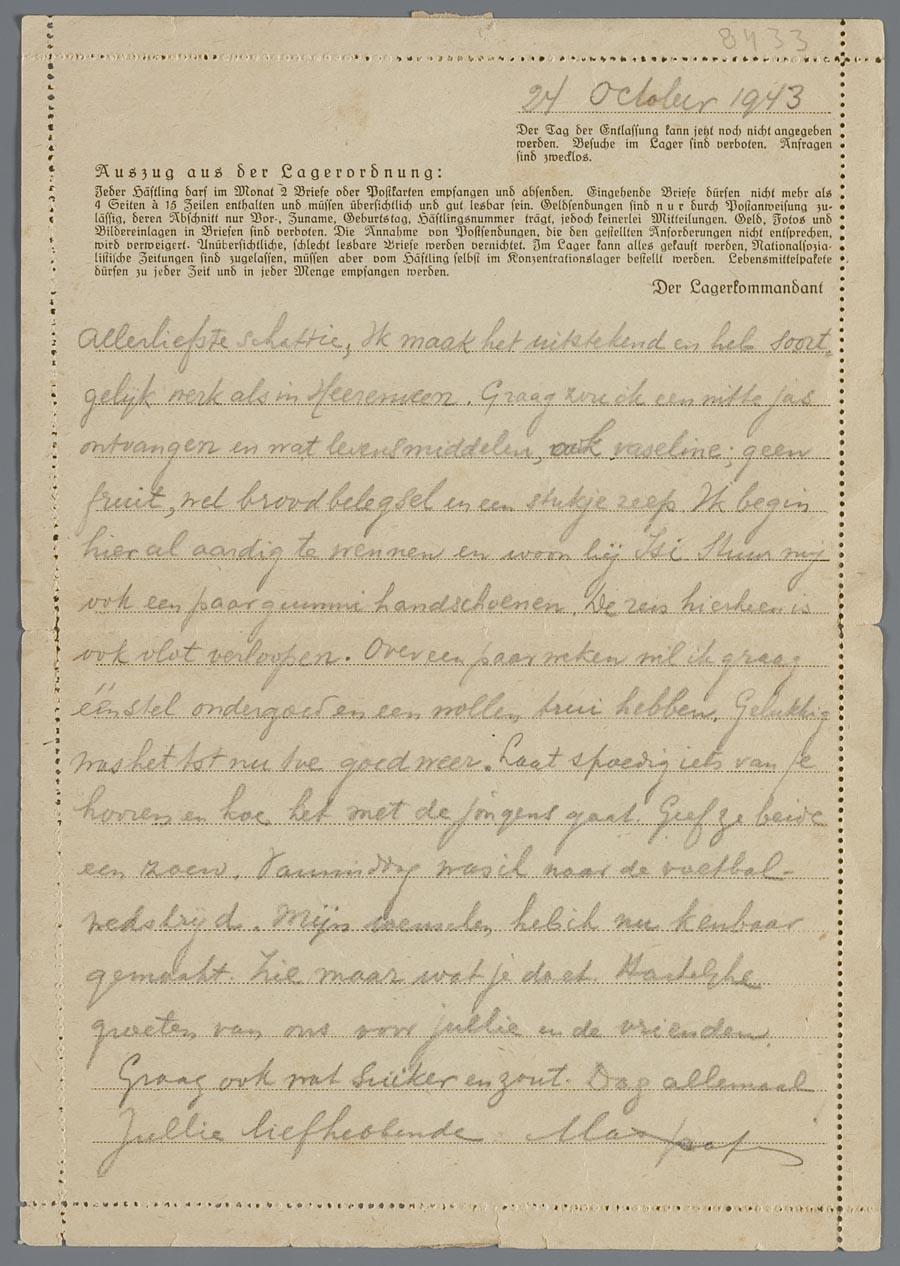 8433
24 October 1943
Der Tag der Entlassung kann jetzt noch nicht angegeben
werden. Besuche im Lager sind verboten. Anfragen
sind zwecklos.
Auszug aus der Lagerordnung:
Jeder Häftling darf im Monat 2 Briefe oder Postkarten empfangen und absenden. Eingehende Briefe dürfen nicht mehr als
4 Seiten à 15 Zeilen enthalten und müssen übersichtlich und gut lesbar sein. Geldsendungen sind nur durch Postanweisung zu-
lässig, deren Abschnitt nur Vor-, Zuname, Geburtstag, Häftlingsnummer trägt, jedoch keinerlei Mitteilungen. Geld, Fotos und
Bildereinlagen in Briefen sind verboten. Die Annahme von Postsendungen, die den gestellten Anforderungen nicht entsprechen,
wird verweigert. Unübersichtliche, schlecht lesbare Briefe werden vernichtet. Im Lager kann alles gekauft werden, Nationalsozia-
listische Zeitungen sind zugelassen, müssen aber vom Häftling selbst im Konzentrationslager bestellt werden. Lebensmittelpakete
dürfen zu jeder Zeit und in jeder Menge empfangen werden.
Der Lagerkommandant
Allerliefste schattie, Ik maak het uitstekend en heb soort-
gelijk werk als in Heerenveen. Graag zou ik een witte jas
ontvangen en wat levensmiddelen, ook vaseline; geen
fruit, wel broodbelegsel en een stukje zeep. Ik begin
hier al aardig te wennen en woon bij Isi Stuur mij
ook een paar gummi handschoenen. De reis hierheen is
ook vlot verloopen. Over een paar weken wil ik graag
één stel ondergoed en een wollen trui hebben. Gelukkig
was het tot nu toe goed weer. Laat spoedig iets van je
hooren en hoe het met de jongens gaat. Geef ze beide
een zoen. Vanmiddag was ik naar de voetbal-
wedstrijd. Mijn wenschen heb ik nu kenbaar
gemaakt. Zie maar wat je doet. Hartelijke
groeten van ons voor jullie en de vrienden
Graag ook wat suiker en zout. Dag allemaal
Jullie liefhebbende Max